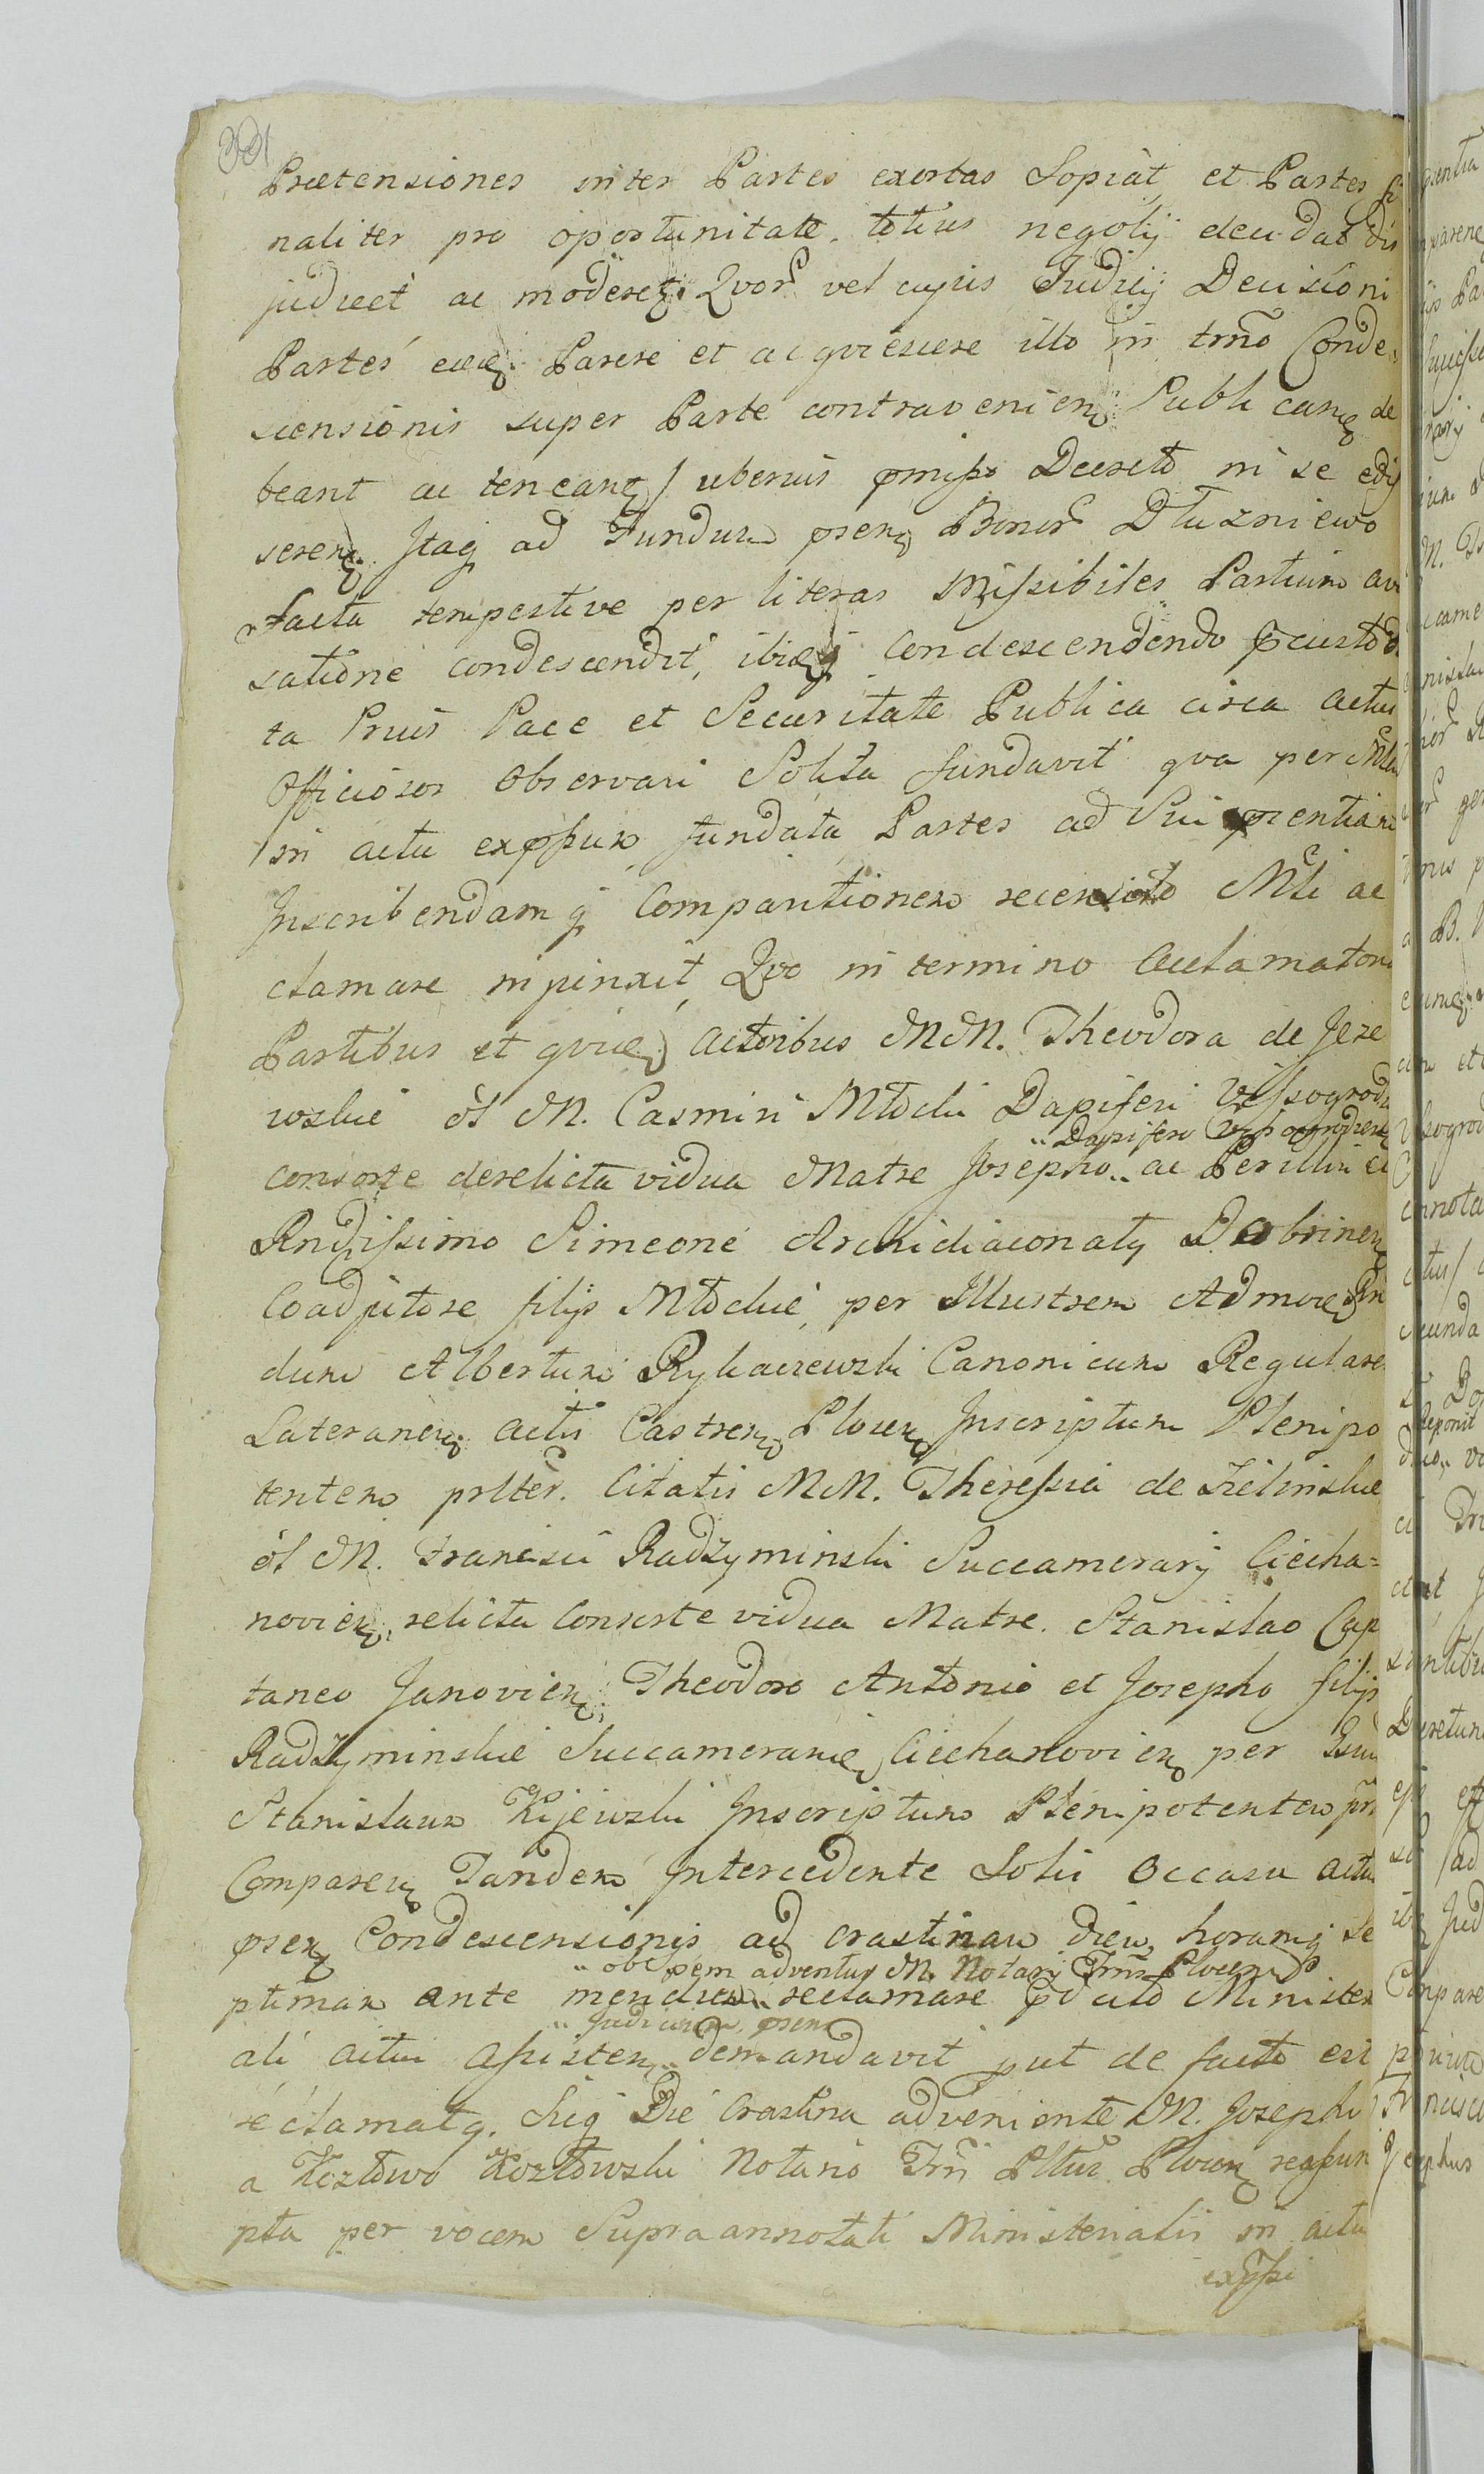 331
Prætensiones inter Partes exortas Sopiat, et Partes fi
naliter pro oportunitate totius negotij decidat dis
judicet ac moderet. Qvor vel cujus Judicij Decisioni
Partes eædem Parere et acqviescere illo in tmno Conde
scensionis super Parte contravenien Publican de
beant ac tenean / uberius pmisso Decreto in se edis
seren. Itaq ad Fundum psen Bonor Dłuzniewo
facta tempestive per literas Missibiles Partium avi
satione condescendit, ibidq Condescendendo pcustodi
ta Prius Pace et Securitate Publica circa actus
Officiosos Observari Solita fundavit qva per Mlem
in actu exppsum fundata Partes ad Sui psentiam
Inscribendamq Comparitionem recensito Mli ac
clamare injunxit, Qvo in termino acclamatoris
Partibus et qvidem Actoribus MM. Theodora de Jeze
wskie ol M. Casmiri Młocki Dapiferi Wissogrodien
„Dapifero Wissogrodien
consorte derelicta vidua Matre Josepho „ ac Perillri et
Rndissimo Simeone Archidiaconatq Dobrinen
Coadjutore filijs Młockie, per Illustrem Admodum Rn
dum Albertum Rykaczewski Canonicum Regularem
Lateranen actis Castren Plocen Inscriptum Plenipo
tentem prltter. Citatis MM. Theressia de Zielinskie
ol M. Francisci Radzyminski Succamerarij Ciecha=
novien, relicta Consorte vidua Matre. Stanislao Cap
taneo Janovien, Theodoro Antonio et Josepho filijs
Radzyminskie Succameraridem Ciechanovien per Gsum
Stanislaum Kijewski Inscriptum Plenipotentem pr
Comparen Tandem Intercedente Solis Occasu actum
psen Condescensionis ad crastinam diem, horamq Se
„ob psem adventus M. Notarij Trris Plocen
ptimam ante meridiem „ reclamare pdicto Ministeri
„Judicium psen
ali actui assisten „ demandavit put de facto est
reclamatq. Sicq Die Crastina adveniente M. Josepho
a Kozłowo Kozłowski Notario Trri Pltus Plocen reassum
pta per vocem Supra annotati Ministerialis in actu
exppssi